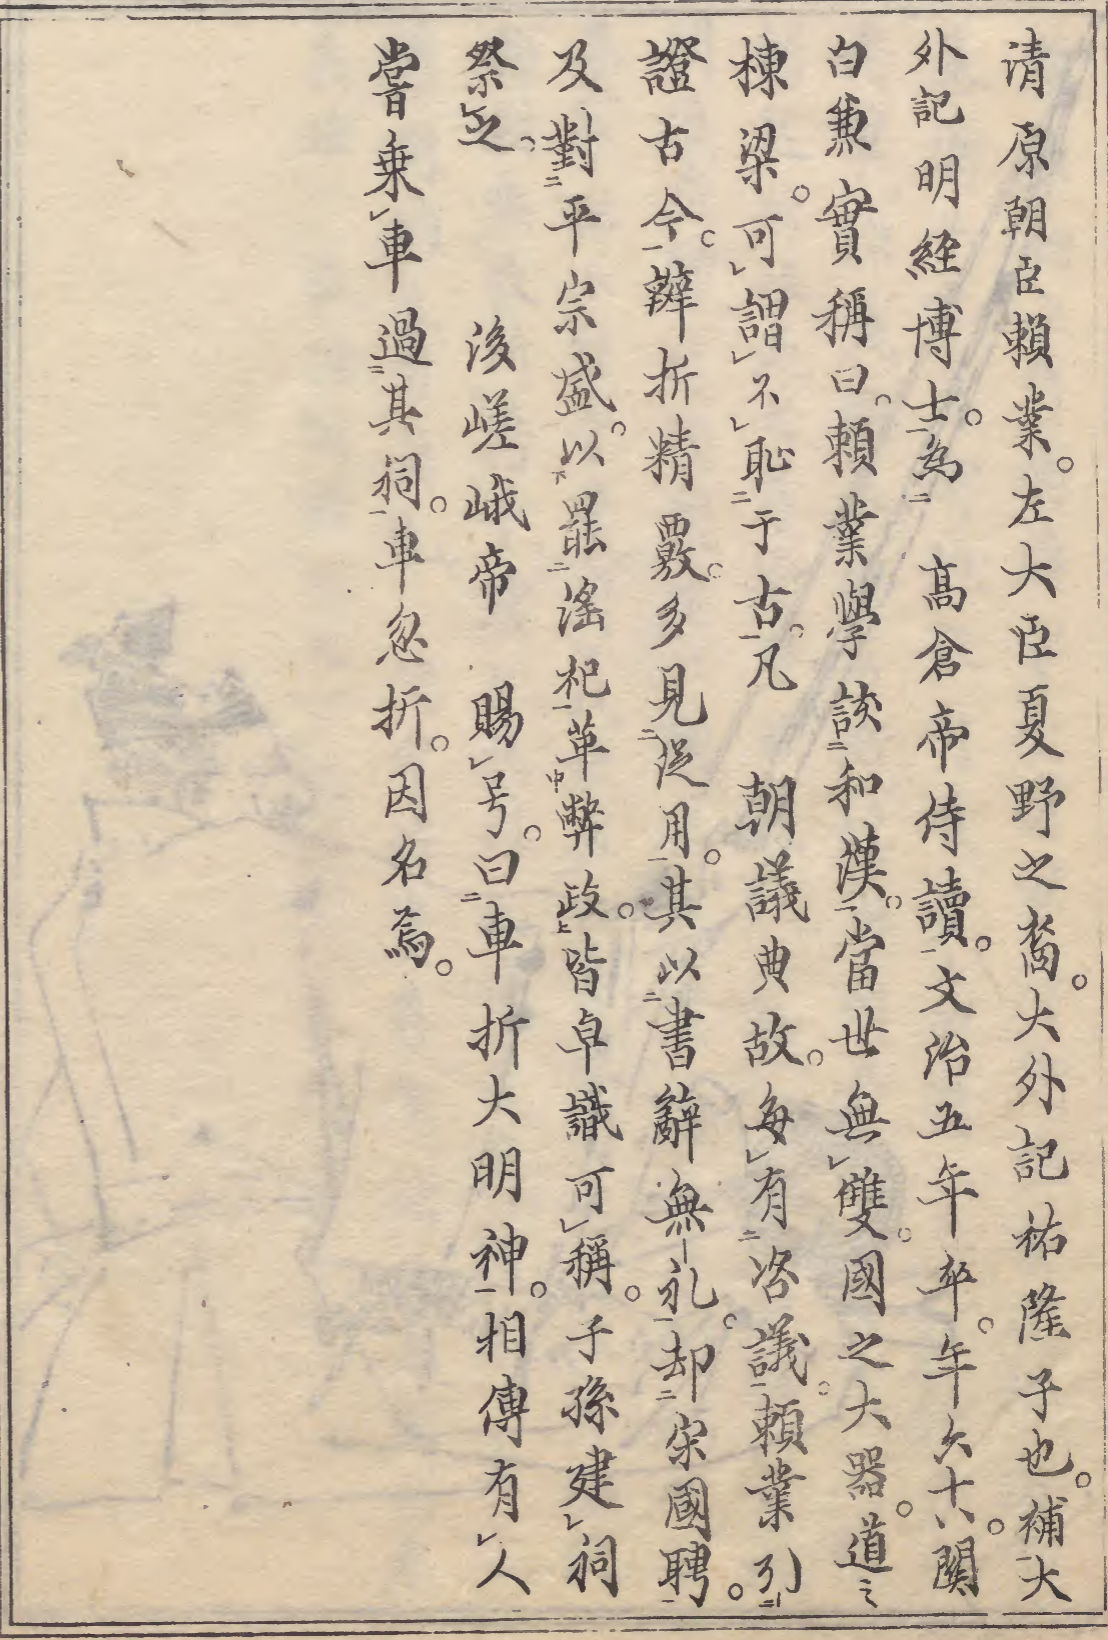 清原朝臣賴業。左大臣夏野之裔。大外記祐隆子也。補大
外記明経博士。為高倉帝侍讀。文治五年卒。年六十八。関
白兼實稱曰。賴業學該和漢。當世無雙。國之大器。道之
棟梁。可謂不恥于古。凡朝議典故。每有咨議。賴業引
證古今。辨折精覈。多見従用。其以書辭無礼却宋國聘。
及對平宗盛。以罷淫祀革弊政。皆卓識可稱。子孫建祠
祭之。後嵯峨帝賜号。曰車折大明神。相傳有人
嘗乗車過其祠。車忽折。因名焉。